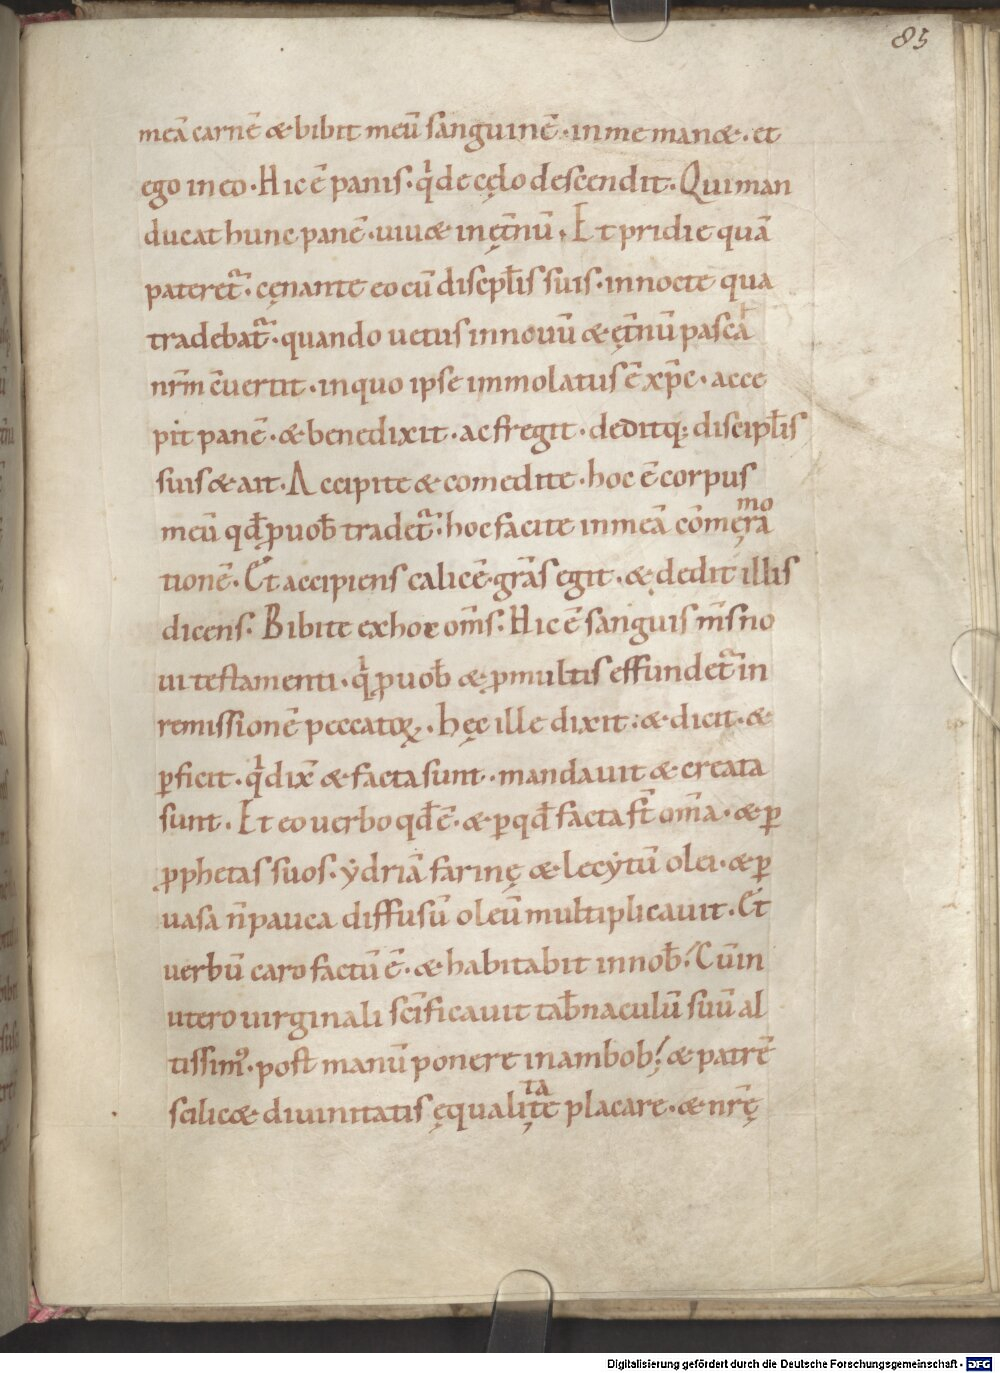 85
meā carnē & bibit meū sanguinē · in me man& · et
ego in eo · Hic ē panis · q̇ de cęlo descendit · Qui man
ducat hunc panē · uiu& in ęt̄nū · Et pridie quā
pateret᷑ · cęnante eo cū discipl̄is suis · in nocte qua
tradebat᷑ · quando uetus in nouū & ęt̄nū pascà
nr̄m c̄uertit · in quo ipse immolatus ē xp̄c · acce
pit panē · & benedixit · ac fregit · deditq; discipl̄is
suis & ait · Accipite & comedite · hoc ē corpus
mo
meū qd̄ ꝓ uob̄ tradet᷑ · hoc facite in meā cōmęra
tionē · Et accipiens calicē · gr̄as egit · & dedit illis
dicens · Bibite ex hoc om̄s · Hic ē sanguis m̄s no
ui testamenti · q̇ ꝓ uob̄ & ꝓ multis effundet᷑ in
remissionē peccatoꝝ · hęc ille dixit : & dicit · &
ꝑficit · q̇ dix̄ & facta sunt · mandauit & creata
sunt · Et eo uerbo qd̄ ē · & ꝑ qd̄ facta st̄ om̄a · & ꝑ
ꝓphetas suos · ẏdriā farinę & lecẏtū olei · & ꝑ
uasa n̄ pauca diffusū oleū multiplicauit · Et
uerbū caro factū ē · & habitabit in nob̄ : Cū in
utero uirginali sc̄ificauit tab̄naculū suū al
tissim᷒ · post manū ponere in ambob; & patrē
ta
scilic& diuinitatis ęqualiţe placare · & nr̄ę
Digitalisierung gefördert durch die Deutsche Forschungsgemeinschaft - DFG